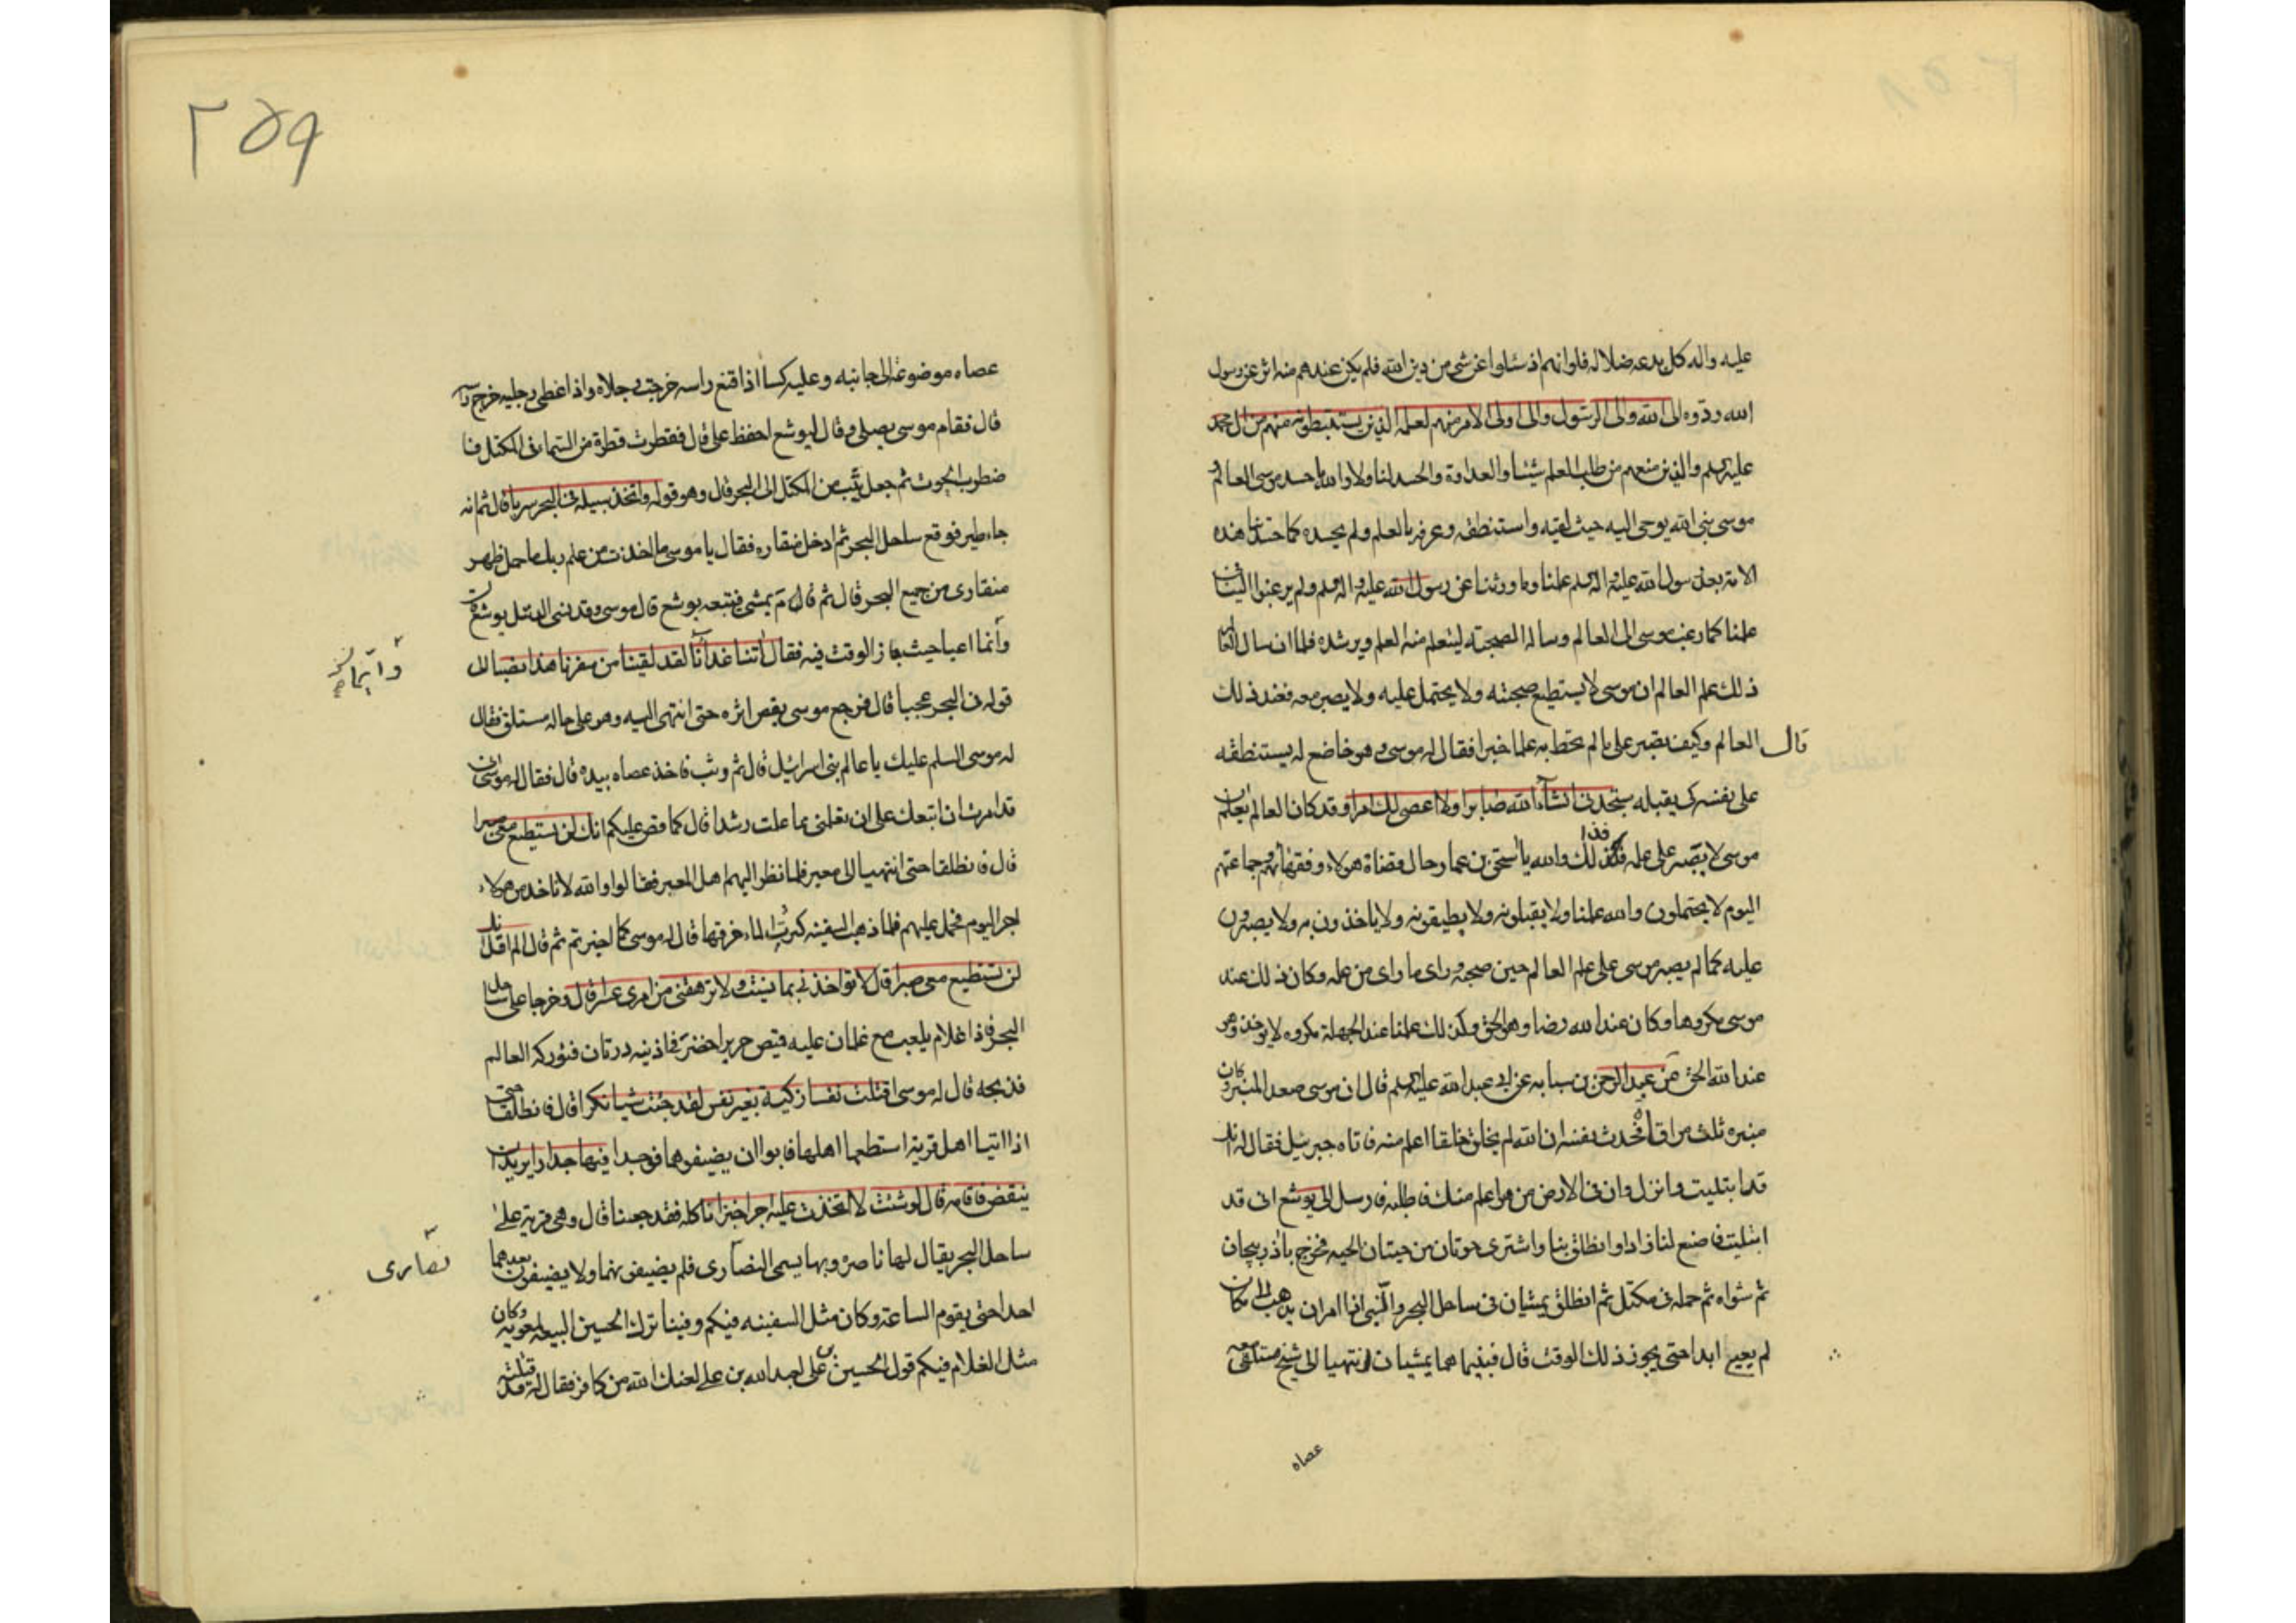 عليه واله كل بدعه ضلاله فلو انهم اذ سئلوا عن شئ من دين الله فلم يكن عندهم منه اثر عن رسول
الله ردوه الى الله والى الرسول والى اولى الامر منهم لعلمه الذين يستنبطونه منهم من ال محمد
عليهم السلم والذين منعهم من طلب العلم منا والعداوة والحسد لنا ولا والله ما حسد موسى العالم و
موسى نبى الله يوحى اليه حيث لقيه واستنطقه وعرفه بالعلم ولم يحسده كما حسدتنا هذه
الامة بعد رسول الله عليه واله السلم علمنا وما ورثنا عن رسول الله عليه واله السلم ولم يرغبوا الينا فى
علمنا كما رغب موسى الى العالم وساله الصحبته ليتعلم منه العلم ويرشده فلما ان سال العالم
ذلك علم العالم ان موسى لا يستطيع صحبته ولا يحتمل عليه ولا يصبر معه فعند ذلك
قال العالم وكيف تصبر على ما لم تحط به علما خبرا فقال له موسى وهو خاضع له يستنطقه
على نفسه كى يقبله ستجدنى انشاء الله صابرا ولا اعصى لك امرا وقد كان العالم يعلم ان
موسى لا يصبر على علمه فكذلك والله يا اسحق بن عمار حال قضاة هولاء وفقهائهم وجماعتهم
اليوم لا يحتملون والله علمنا ولا يقبلونه ولا يطيقونه ولا ياخذون به ولا يصبرون
عليه كما لم يصبر موسى على علم العالم حين صحبه وراى ما راى من علمه وكان ذلك عند
موسى مكروها وكان عند الله رضا وهو الحق وكذلك علمنا عند الجهلة مكروه لا يوخذ وهو
عند الله الحق عن عبد الرحمن بن سيابه عن ابى عبد الله عليه السلم قال ان موسى صعد المنبر وكان
منبره ثلث مراق فحدث نفسه ان الله لم يخلق خلقا اعلم منه فاتاه جبرئيل فقال له انك
قد ابتليت وانزل وان فى الارض من هو اعلم منك فاطلبه فارسل الى يوشع انى قد
ابتليت فاصنع لنا زادا وانطلق بنا واشترى حوتان من حيتان الحيه فخرج باذربيجان
ثم شواه ثم حمله فى مكتل ثم انطلق يمشيان فى ساحل البحر والنبى اذا امر ان يذهب الى مكان
لم يعيى ابدا حتى يجوز ذلك الوقت قال فبينما هما يمشيان انتهيا الى شيخ مستلقى معه
عصاه
٢٥٩
عصاه موضوعة الى جانبه وعليه كسا اذا قنع راسه خرجت رجلاه واذا غطى رجليه خرج راسه
قال فقام موسى يصلى وقال ليوشع احفظ على قال فقطرت قطرة من السماء فى المكتل فا
ضطرب الحوت ثم جعل يثب من المكتل الى البحر قال وهو قوله واتخذ سبيله فى البحر سربا قال ثم انه
جاء طير فوقع ساحل البحر ثم ادخل منقاره فقال يا موسى ما اخذت من علم ربك ما حمل ظهر
منقارى من جميع البحر قال ثم قام يمشى فتبعه يوشع قال موسى وقد نسى المكتل يوشع قال
وانما اعيا حيث جاز الوقت فيه فقال اتنا غدائنا لقد لقينا من سفرنا هذا نصبا الى
وانما
قوله فى البحر عجبا قال فرجع موسى يقص اثره حتى انتهى اليه وهو على حاله مستلق فقال
له موسى السلم عليك يا عالم بنى اسرائيل قال ثم وثب فاخذ عصاه بيده قال فقال له موسى انى
قد امرت ان اتبعك على ان تعلمنى مما علمت رشدا قال كما قص عليكم انك لن تستطيع معى صبرا
قال فانطلقا حتى انتهيا الى معبر فلما نظر اليهم اهل المعبر فقالوا والله لا ناخذ من هولاء
اجرا اليوم فحمل عليهم فلما ذهب السفينه كبرت الماء خرقها قال له موسى كما اخبرتم ثم قال الم اقل انك
لن تستطيع معى صبرا قال لا تواخذنى بما نسيت ولا ترهقنى من امرى عسرا قال وخرجا على ساحل
البحر فاذا غلام يلعب مع غلمان عليه قميص حرير اخضر فى اذنيه درتان فتوركه العالم
فذبحه قال له موسى اقتلت نفسا زكية بغير نفس لقد جئت شيئا نكرا قال فانطلقا حتى
اذا اتيا اهل قرية استطعما اهلها فابوا ان يضيفوهما فوجدا فيها جدارا يريد ان
ينقض فاقامه قال لو شئت لاتخذت عليه اجرا خبزا ناكله فقد جعنا قال وهى قرية على
ساحل البحر يقال لها ناصرة وبها يسمى النصارى فلم يضيفونهما ولا يضيفون بعدهما
نصارى
احدا حتى يقوم الساعة وكان مثل السفينه فيكم وفينا ترك الحسين البيعه لمعويه وكان
مثل الغلام فيكم قول الحسين بن على لعبد الله بن على لعنك الله من كافر فقال له قد قتلته